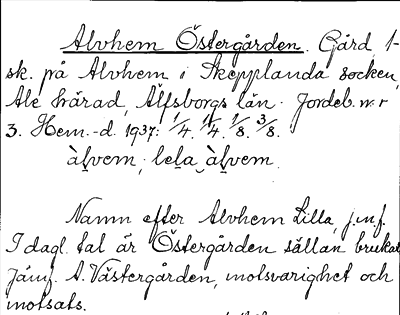 Alvhem Östergården. Gård, 1-
sk. på Alvhem i Skepplanda socken,
Ale härad, Älfsborgs län. Jordeb. n:r
3. Hem.-d. 1937: 1/4. 1/4. 1/8. 3/8.
àḷvem, lela àḷvem.
Namn efter Alvhem Lilla, j.mf.
I dagl. tal är Östergården sällan brukat
Jämf. A. Västergården, motsvarighet och
motsats.